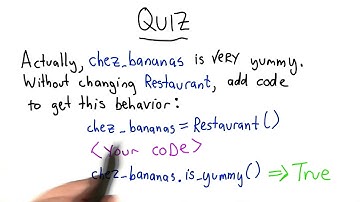 QUIZ
Actually, chez_bananas is VERY yummy.
Without changing Restaurant, add code
to get this behavior:
chez_bananas = Restaurant()
<YOUR CODE>
chez_bananas.is_yummy() => True